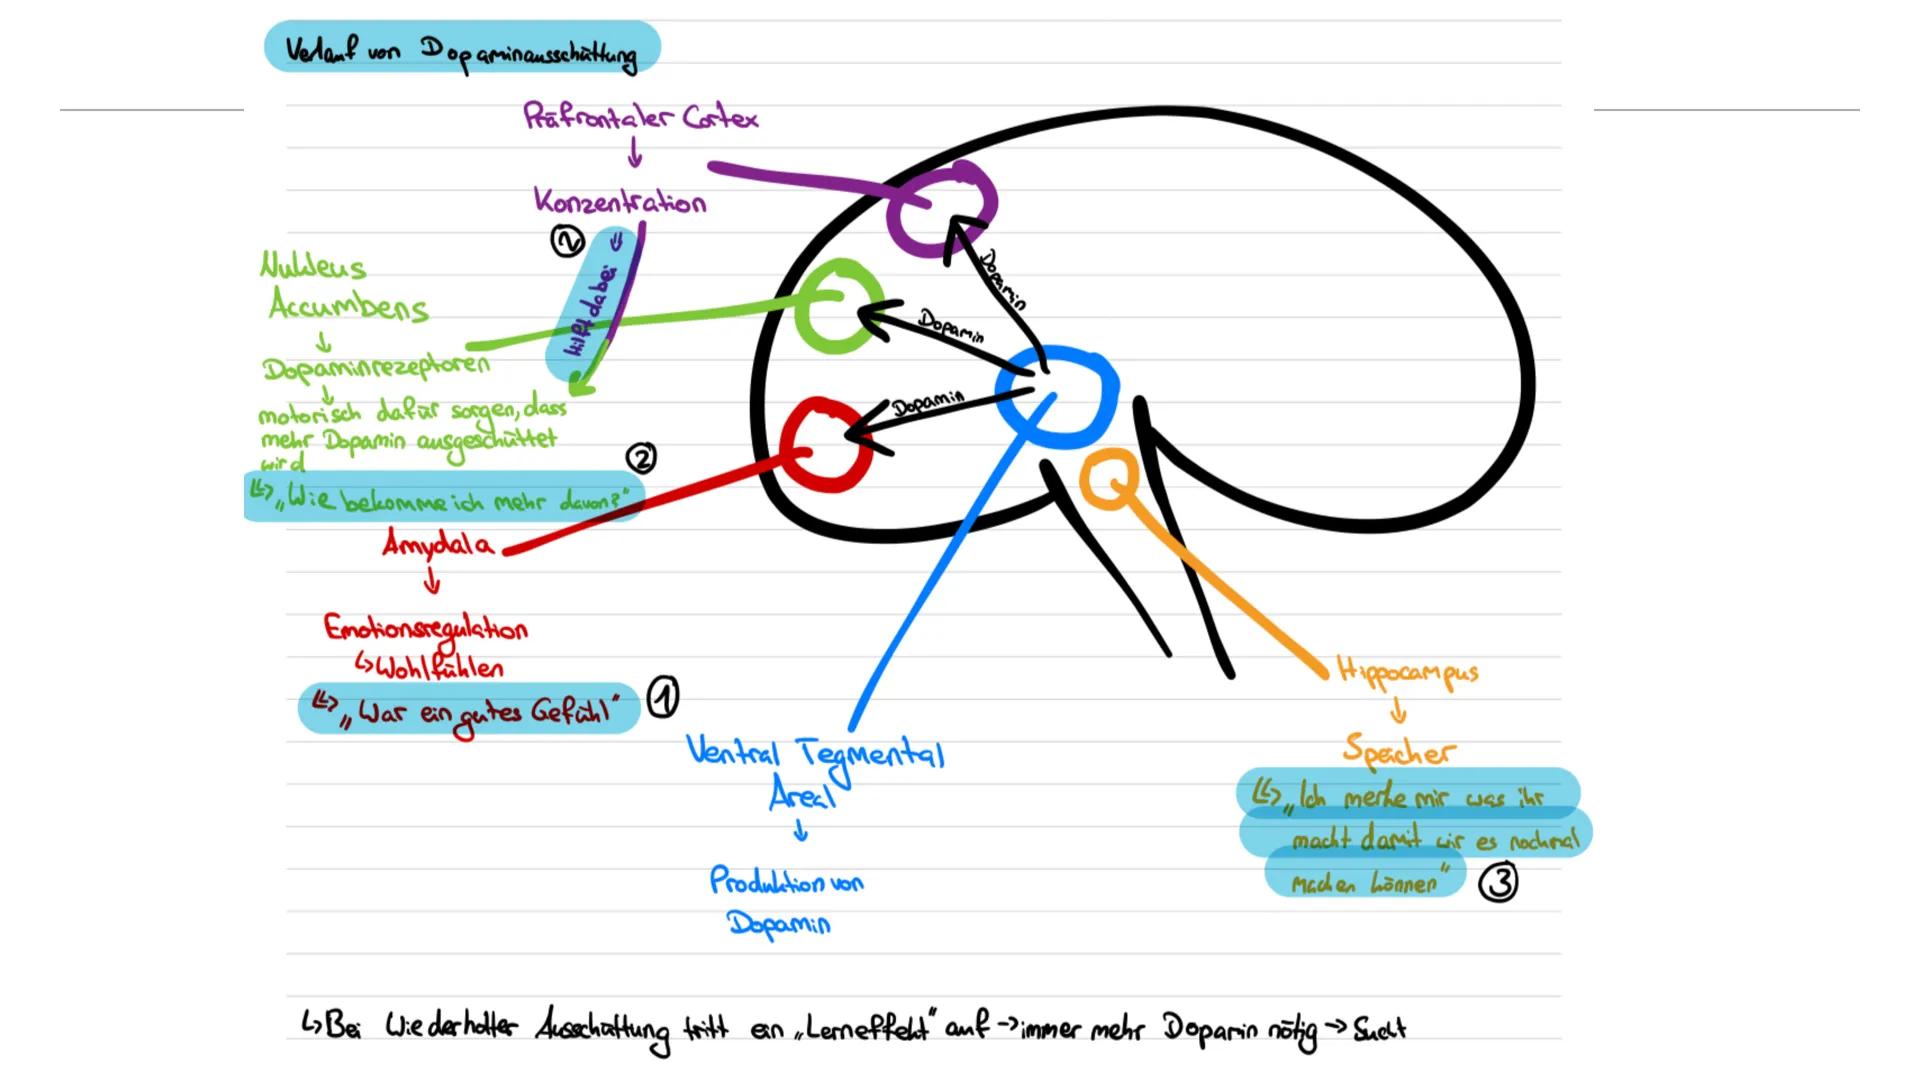 Verlauf von Dopaminausschüttung
Präfrontaler Cortex
↓
Konzentration
②
hilft dabei
Nukleus
Accumbens
↓
Dopaminrezeptoren
↓
motorisch dafür sorgen, dass
mehr Dopamin ausgeschüttet
wird
↳ „Wie bekomme ich mehr davon?“
②
Amydala
↓
Emotionsregulation
↳ Wohlfühlen
↳ „War ein gutes Gefühl“
①
Dopamin
Dopamin
Dopamin
Ventral Tegmental
Areal
↓
Produktion von
Dopamin
Hippocampus
↓
Speicher
↳ „Ich merke mir was ihr
macht damit wir es nochmal
machen können“
③
↳ Bei Wiederholter Ausschüttung tritt ein „Lerneffekt“ auf → immer mehr Dopamin nötig → Sucht